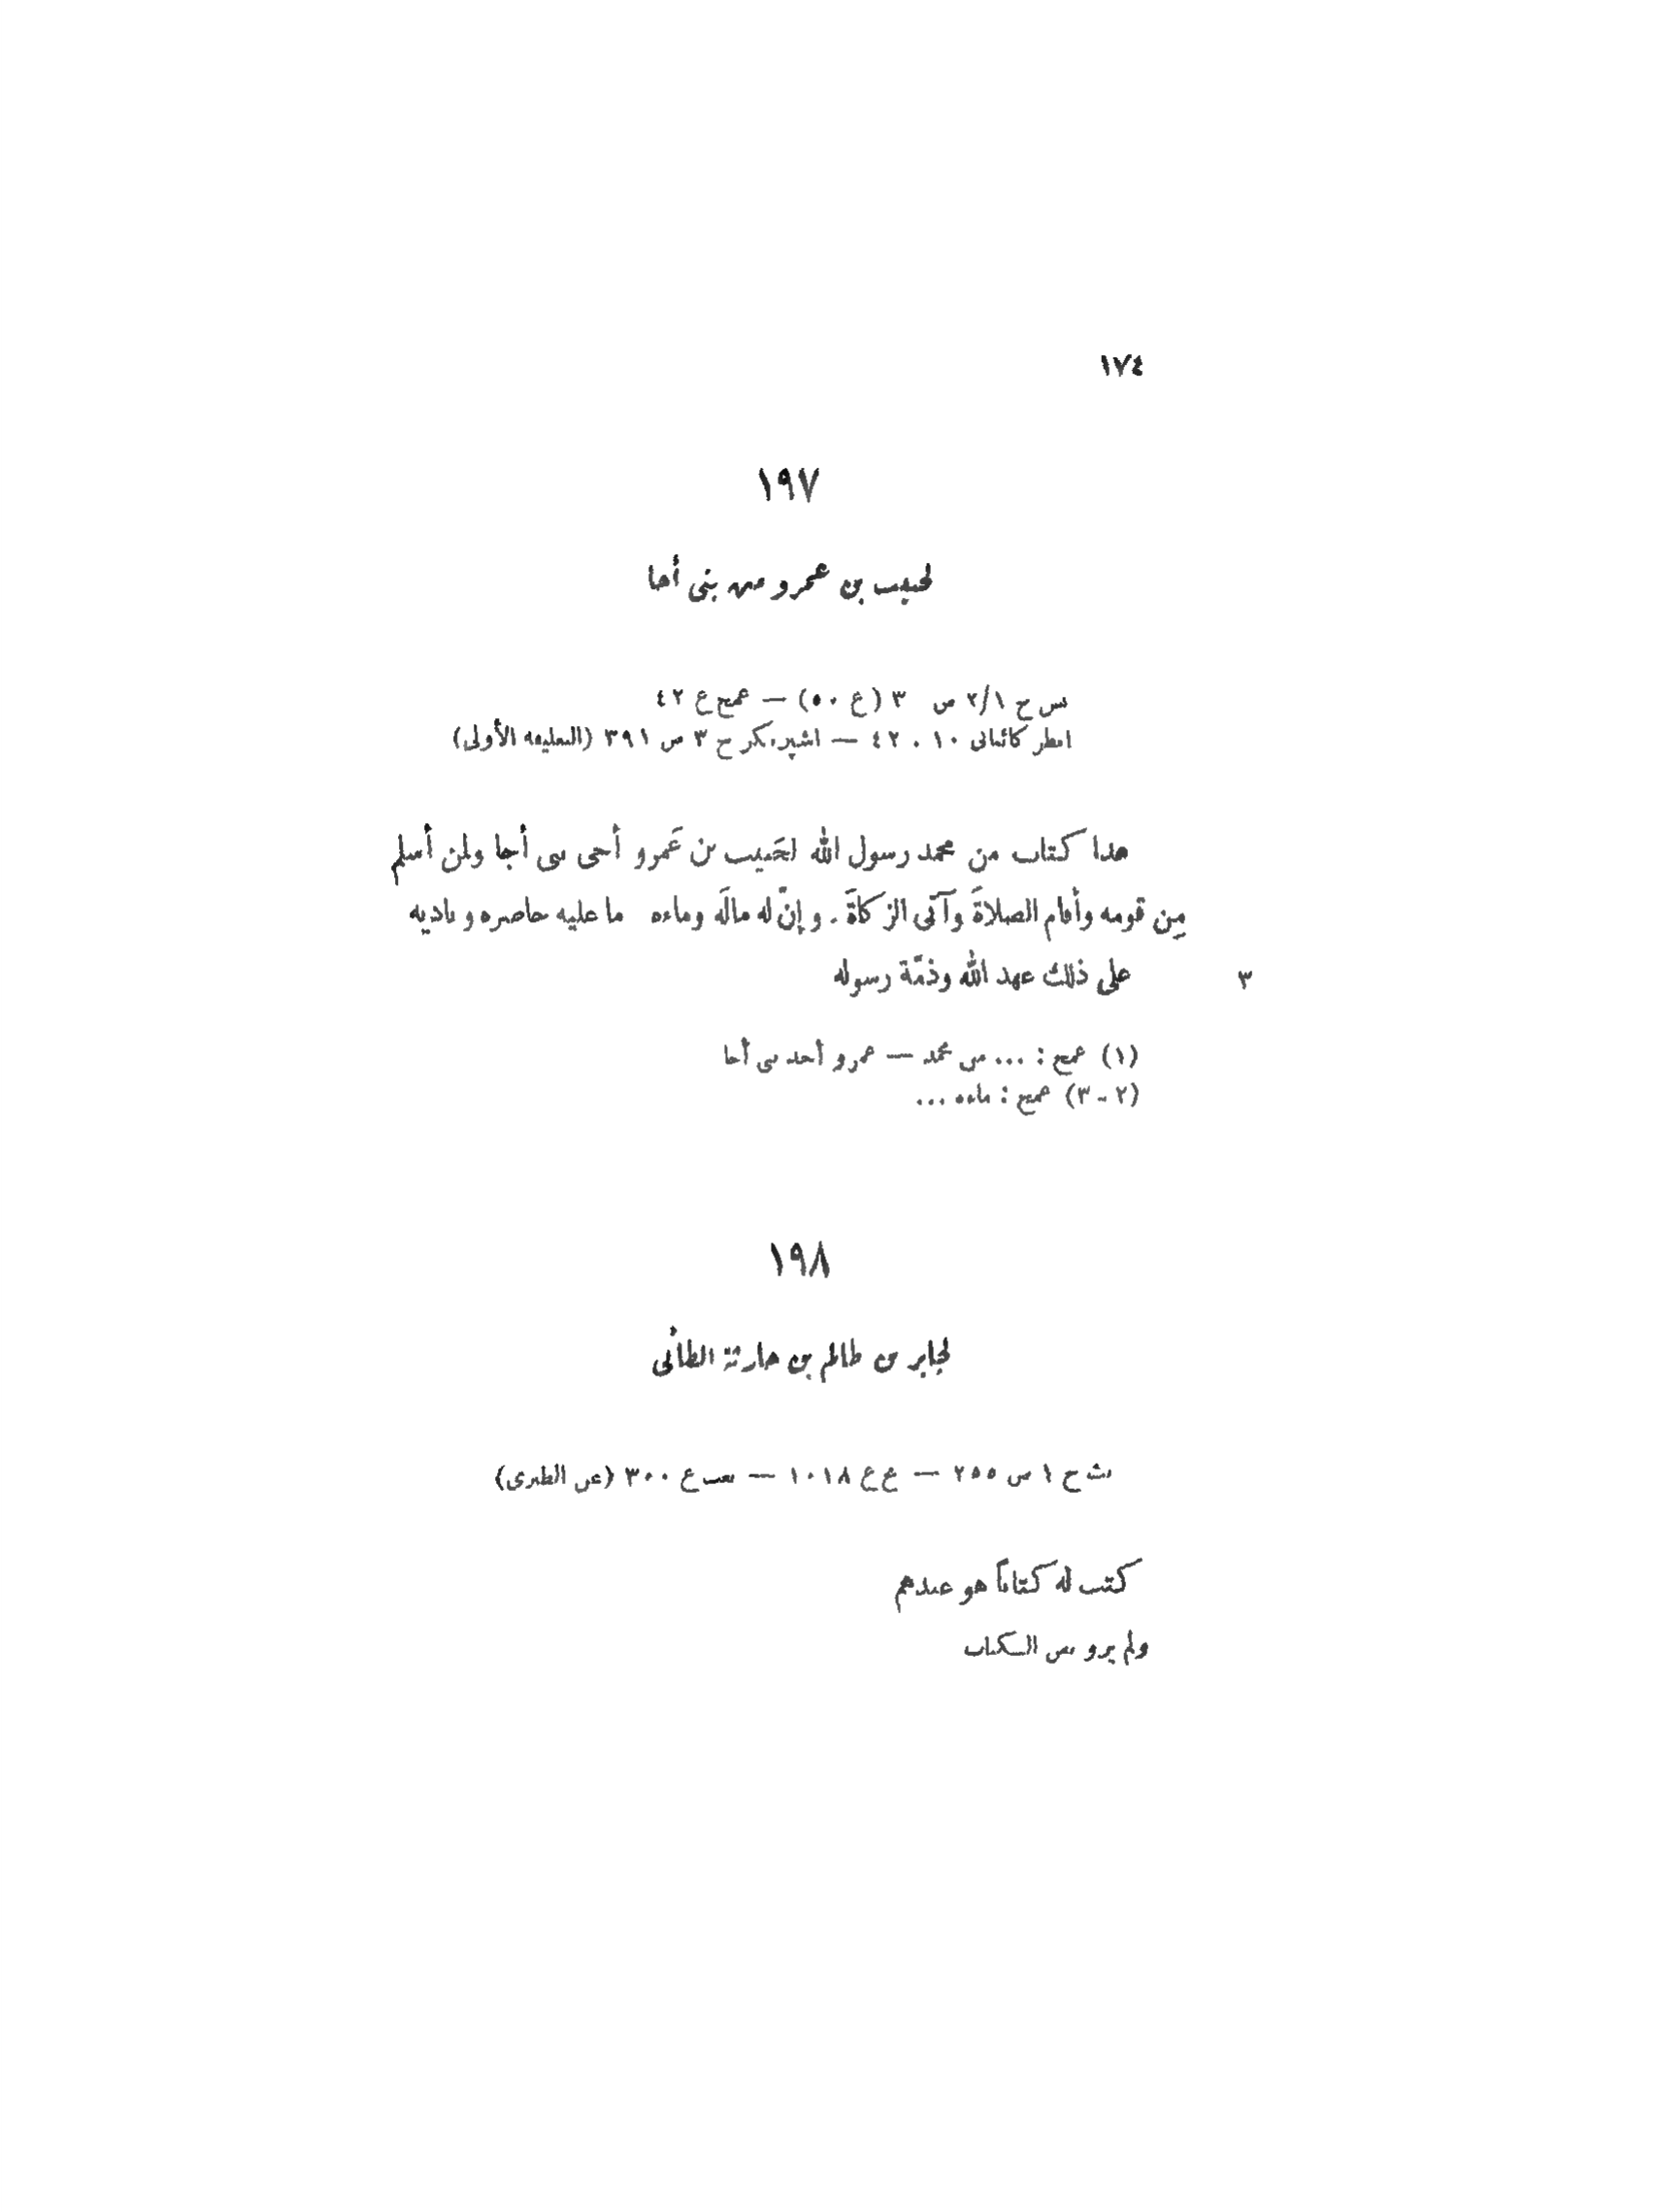 ١٧٤
١٩٧
لحبيب بن عمرو من بنى أجا
بس ج ٢/١ ص ٣ (ع ٥٠) — عمخ ع ٤٢
انظر كائتانى ١٠ . ٤٢ — اشپرنكر ج ٣ ص ٣٩١ (التعليقة الأولى)
هذا كتاب من محمد رسول الله لحَبيب بن عَمرو أخى بنى أجا ولمن أسلم
مِن قومه وأقام الصلاةَ وآتى الزكاةَ . وإنّ له مالَه وماءه ما عليه حاضره وباديه
على ذلك عهد الله وذمّة رسوله
٣
(١) عمخ : ... من محمد — عمرو أحد بنى أجا
(٢ - ٣) عمخ : ماءه ...
١٩٨
لجابر بن ظالم بن حارثة الطائى
بث ج ١ ص ٢٥٥ — ع ع ١٠١٨ — بعب ع ٣٠٠ (عن الطبرى)
كتب له كتاباً هو عندهم
ولم يرو نص الكتاب